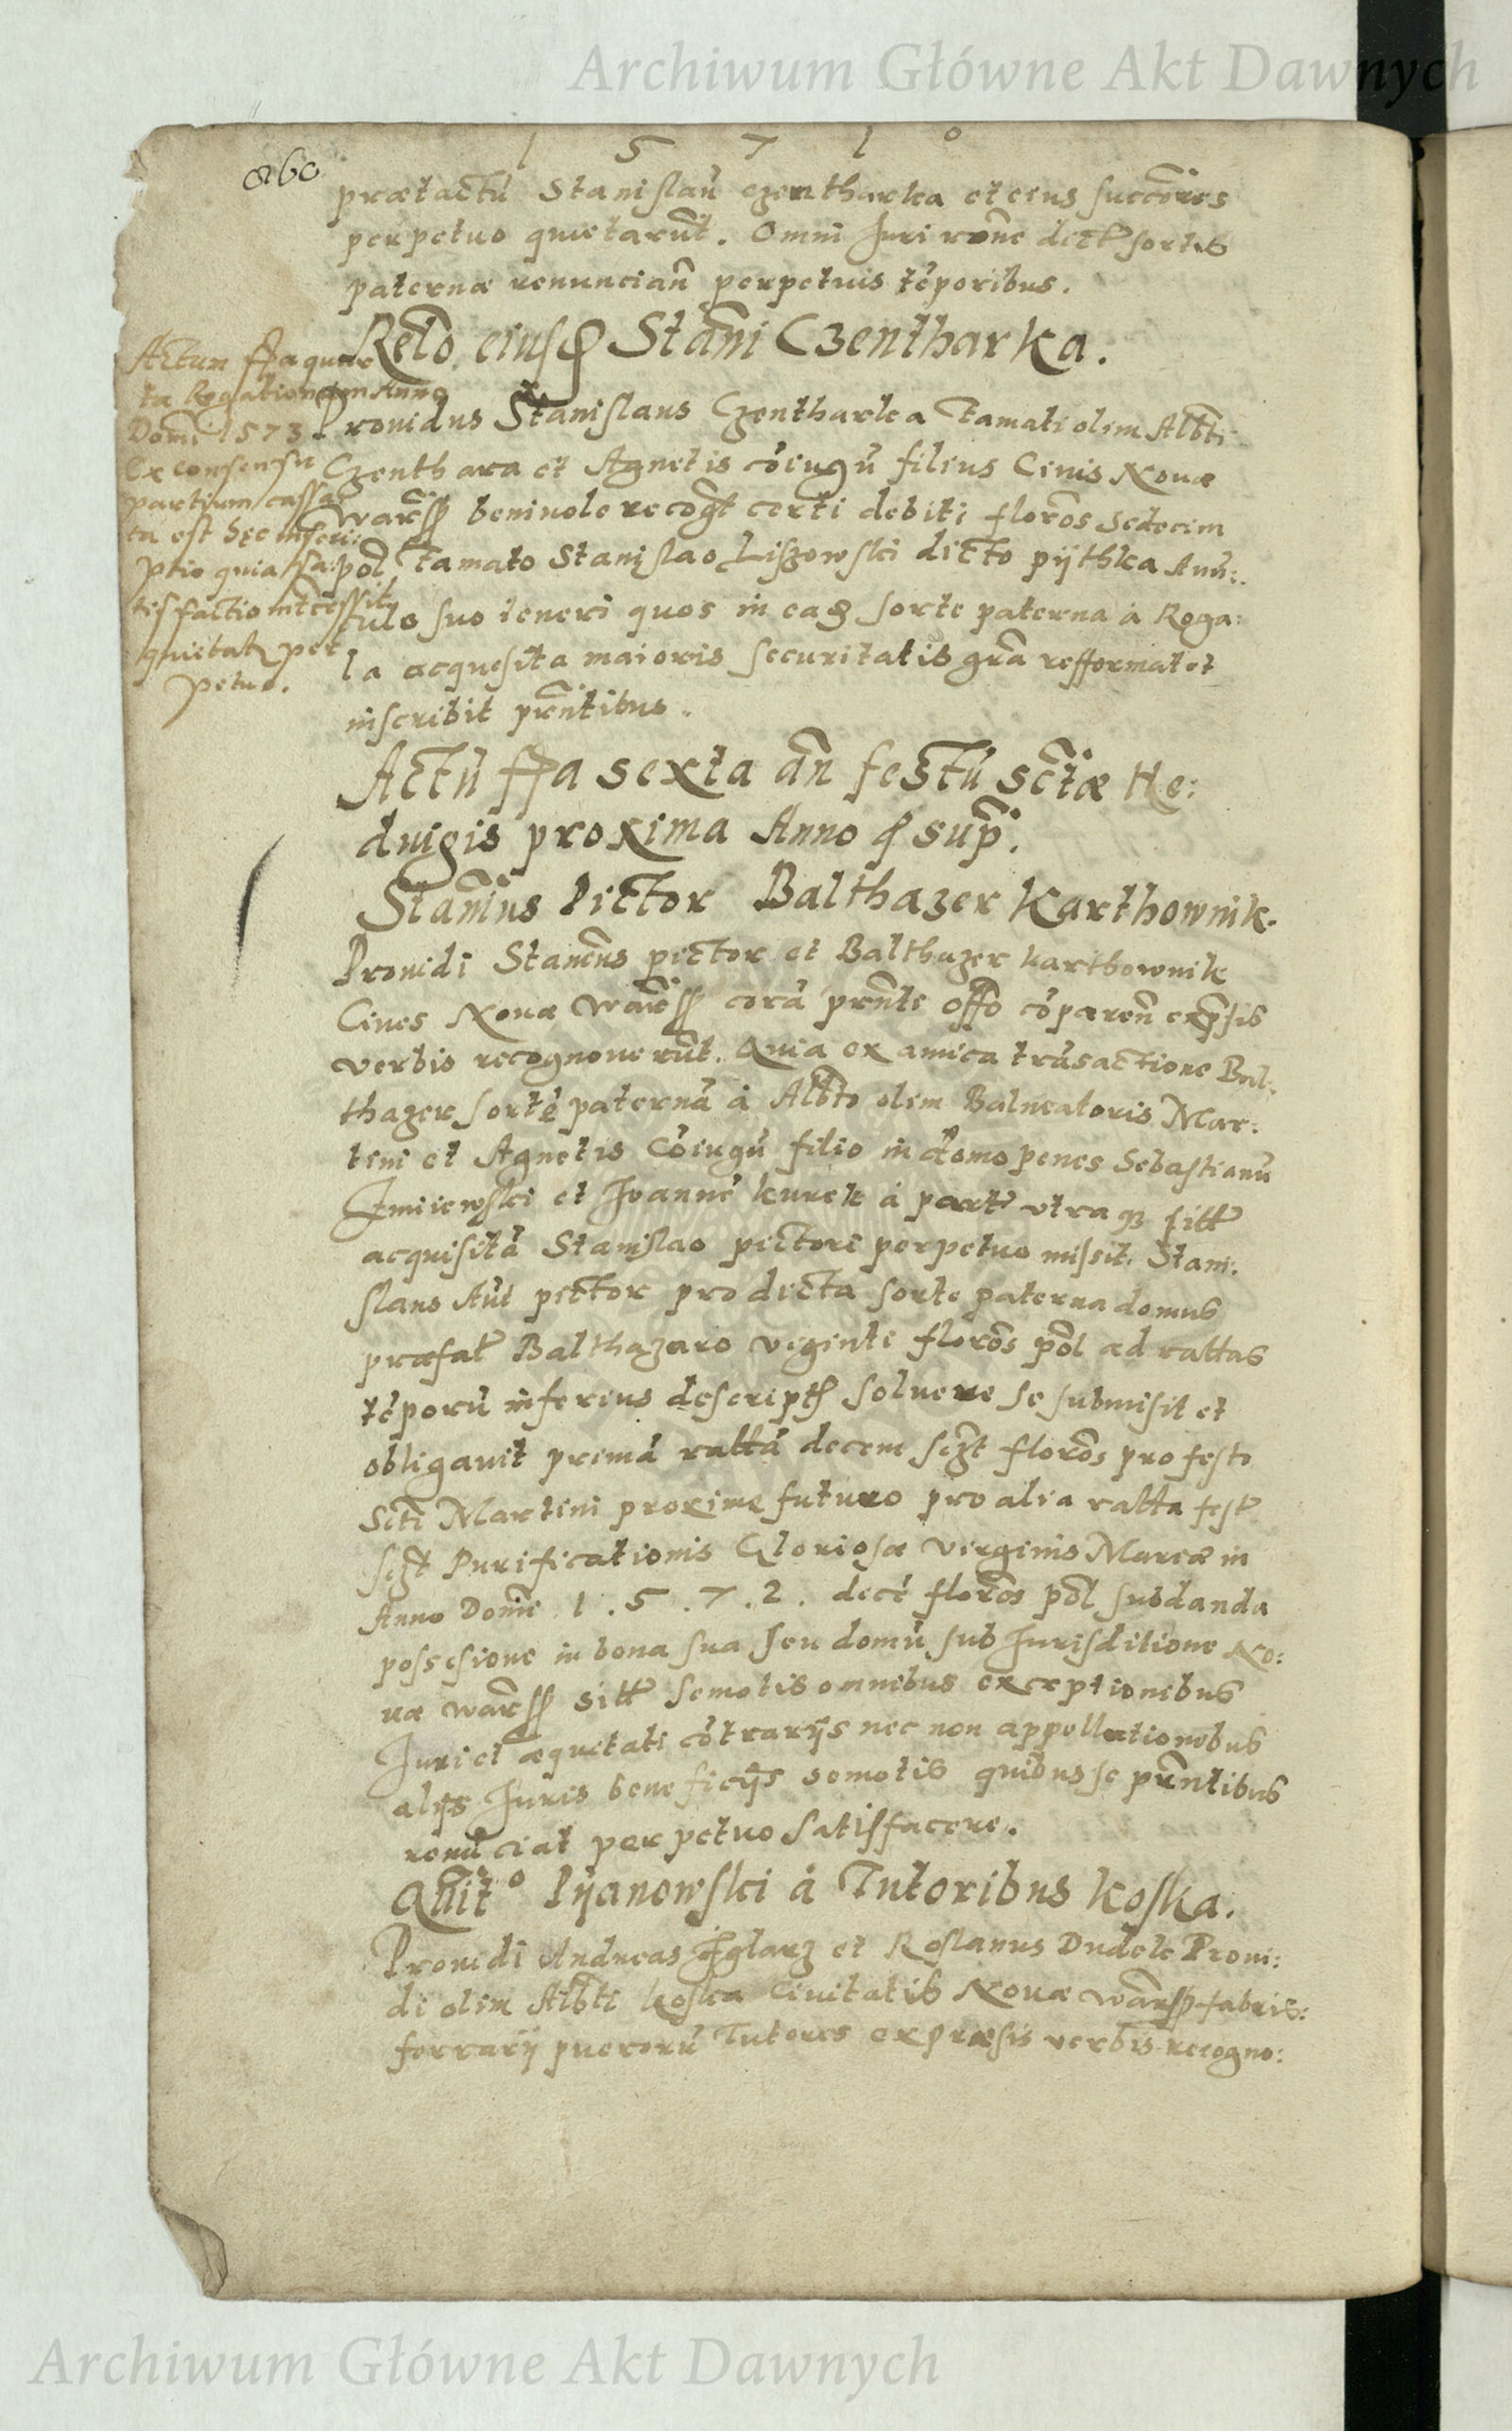 Archiwum Główne Akt Dawnych
1 5 7 1º
260
prætactũ Stanislaũ Czentharka et eius succõres
perpetuo quietarũt. Omni Juri rõne dictæ sortis
paternæ renunciañ perpetuis tẽporibus.
Recto eiusd Stãni Czentharka.
Actum fferia quin
ta Rogationum Anno
Domi 1573
Ex consensu
partium cassa
ta est hęc inscri:
ptio quia sa:
tisfactio intercessit
quietat per
petuo.
Prouidus Stanislaus Czentharka Famati olim Albti
Czenthara et Agnetis cõiugũ filius Ciuis Nouæ
Warss beniuole recogt certi debiti florõs sedecim
pol Famato Stanislao Liszowski dicto pijthka Auũ:
culo suo teneri quos in ead sorte paterna à Roga:
la acquesita maioris securitatis grã refformat et
inscribit prñtibus.
Actũ fferia sexta añ festũ sctæ He:
duigis proxima Anno q̃ sup̃.
Stanius Pictor Balthazer Karthownik.
Prouidi Stanius pictor et Balthazer karthownik
Ciues Nouæ Warss corã prñte offo cõpareñ exp̃sis
verbis recognouerũt. Quia ex amica trãsactione Bal:
thazer sortẽ paternã à Albto olim Balneatoris Mar:
tini et Agnetis Cõiugũ filio in domo penes Sebastianũ
Zmiiewski et Joannẽ kurek à parte vtraq sitt
acquisitã Stanislao pictori perpetuo missit. Stani:
slaus Aũt pictor pro dicta sorte paterna domus
præfat Balthazaro viginti florõs põl ad rattas
tẽporũ inferius descript soluere se submisit et
obligauit primã rattã decem sczt florõs pro festo
Scti Martini proxime futuro pro alia ratta fest
sczt Purificationis Gloriosæ virginis Mariæ in
Anno Domi 1.5.7.2. decẽ florõs põl sub danda
possesione in bona sua seu domũ sub Jurisditione No:
uæ Warss sitt semotis omnibus exceptionibus
Juri et æquitati cõtrarijs nec non appellationibus
alijs Juris beneficijs semotis quibus se prñtibus
renũciat perpetuo satisfacere.
Quitº Pijanowski à Tutoribus Koska.
Prouidi Andreas Jglarz et Roslanus Dudek Proui:
di olim Albti koska Ciuitatis Nouæ Warss fabris:
ferrarij puerorũ Tutores expræsis verbis recogno:
Archiwum Główne Akt Dawnych